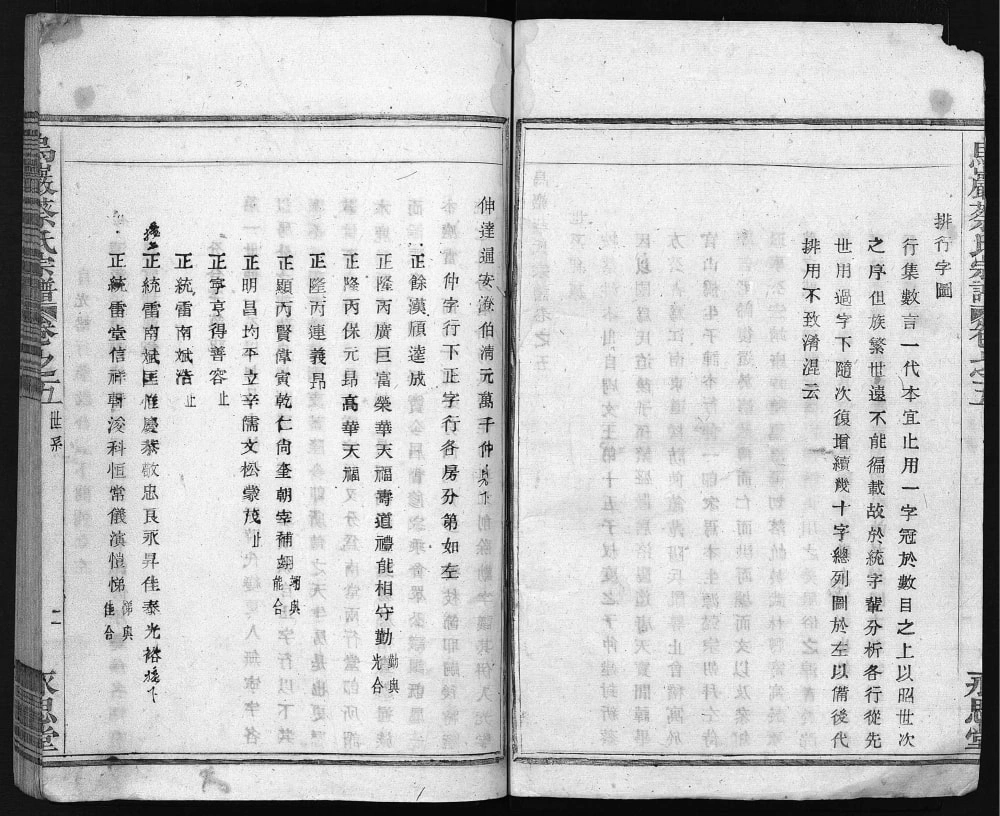 排行字圖
行集數言一代本宜止用一字冠於數目之上以昭世次
之序但族繁世遠不能徧載故於統字輩分析各行從先
世用過字下隨次復增續幾十字總列圖於左以備後代
排用不致淆混云
永思堂
伸達迴安 伯清元萬千仲
仲字行下正字行各房分第如左
正餘漢頎逵成
正隆丙廣巨富榮華天福壽道禮能相守勤 勤與光合
正隆丙保元昻高華天福
正隆丙連義昻
正顯丙賢偉寅乾仁尙奎朝宰補翊 翊與能合
正明昌均平立辛儒文松蒙茂止
正寧亨得善容止
正統雷南斌浩止
正統雷南斌匡惟慶恭敬忠良永昇佳泰光裕
正統雷堂信祥軒浚科恒常儀演愷悌 悌與佳合
烏巖蔡氏宗譜卷之五
世系
二
永思堂